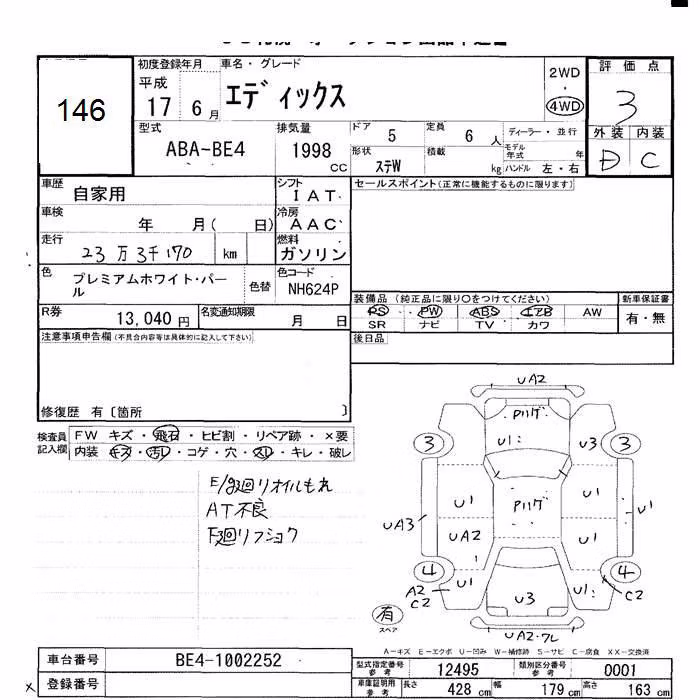 146
初度登録年月
平成
17 6 月
車名・グレード
エディックス
2WD
・
4WD
評価点
3
外装 内装
D C
型式
ABA-BE4
排気量
1998
CC
ドア 5
形状
ステW
定員 6 人
積載 kg
ディーラー・並行
モデル年式 年
ハンドル 左・右
車歴
自家用
シフト
I A T
セールスポイント(正常に機能するものに限ります)
車検
年 月( 日)
冷房
A A C
走行
23万3千170 km
燃料
ガソリン
色
プレミアムホワイト・パール
色替
色コード
NH624P
装備品 (純正品に限り○をつけてください)
PS PW ABS エアB AW
SR ナビ TV カワ
新車保証書
有・無
R券
13,040 円
名変通知期限
月 日
後日品
注意事項申告欄(不具合内容等は具体的に記入して下さい)
修復歴 有〔箇所 〕
検査員記入欄
FW キズ・飛石・ヒビ割・リペア跡・×要
内装 キズ・汚レ・コゲ・穴・スレ・キレ・破レ
E/g廻リオイルもれ
AT不良
F廻リフショク
UA2
Pハゲ
U1
3
U3
3
U1
Pハゲ
U1
U1
UA3
UA2
U1
4
U1
A2
C2
U3
U1
4
C2
有
スペア
UA2・クレ
A-キズ E-エクボ U-凹み W-補修跡 S-サビ C-腐食 XX-交換済
車台番号
BE4-1002252
型式指定番号
参考
12495
類別区分番号
参考
0001
登録番号
車庫証明用
参考
長さ 428 cm
幅 179 cm
高さ 163 cm